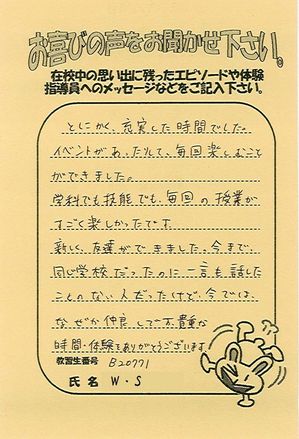 お喜びの声をお聞かせ下さい。
在校中の思い出に残ったエピソードや体験
指導員へのメッセージなどをご記入下さい。
とにかく、充実した時間でした。
イベントがあったりして、毎回楽しむこと
ができました。
学科でも技能でも、毎回の授業が
すごく楽しかったです。
新しく、友達ができました。今まで、
同じ学校だったのに一言も話した
ことのない人だったけど、今では、
なぜか仲良しです。貴重な
時間・体験をありがとうございます。
教習生番号 B20771
氏名 W・S